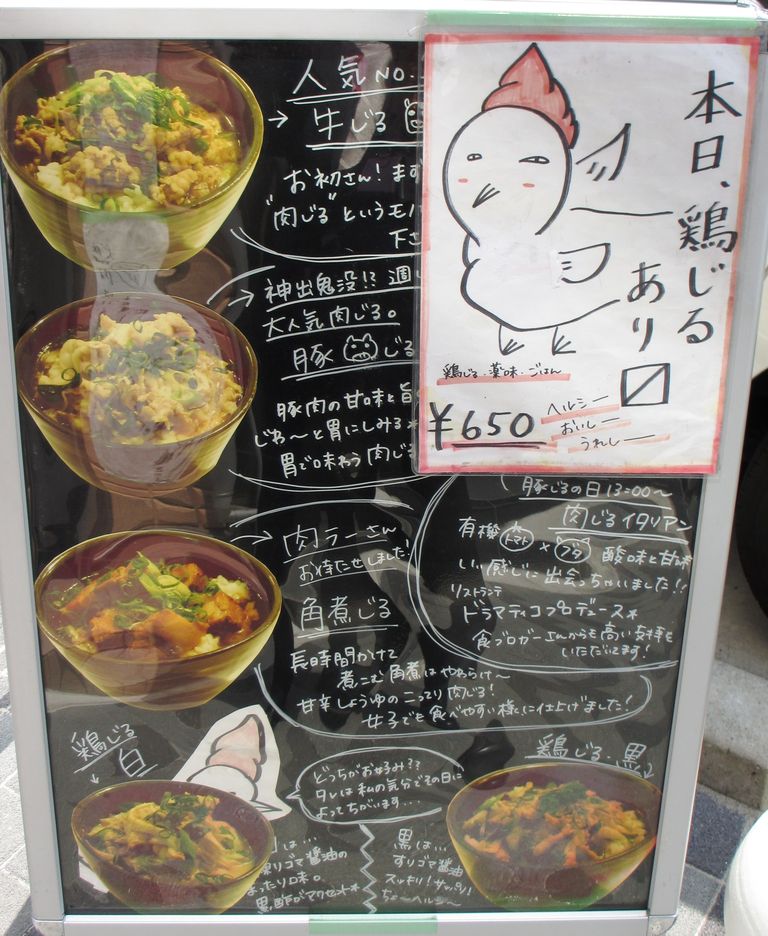 人気NO.
牛じる
お初さん!まず
"肉じる"というモノ
下さ
神出鬼没!?週
大人気肉じる。
豚じる
豚肉の甘味と旨
じわ〜と胃にしみる
胃で味わう肉じ
本日、鶏じる
あり〼
鶏じる・薬味・ごはん
¥650
ヘルシー
おいしー
うれしー
豚じるの日13:00〜
肉じるイタリアン
有機トマト×ブタ 酸味と甘味
いい感じに出会っちゃいました!!
リストランテ
ドラマティコプロデュース
食ブロガーさんからも高い支持も
いただいてます!
肉ラーさん
お待たせしました!
角煮じる
長時間かけて
煮こむ角煮はやわらけ〜
甘辛しょうゆのこってり肉じる!
女子でも食べやすい様に仕上げました!
鶏じる
白
どっちがお好み??
タレは私の気分でその日に
よってちがいます...
鶏じる・黒
は...
リゴマ醤油の
ったり味。
黒酢がアクセント
黒は...
すりゴマ醤油
スッキリ!サッパリ!
ちょ〜ヘルシ〜